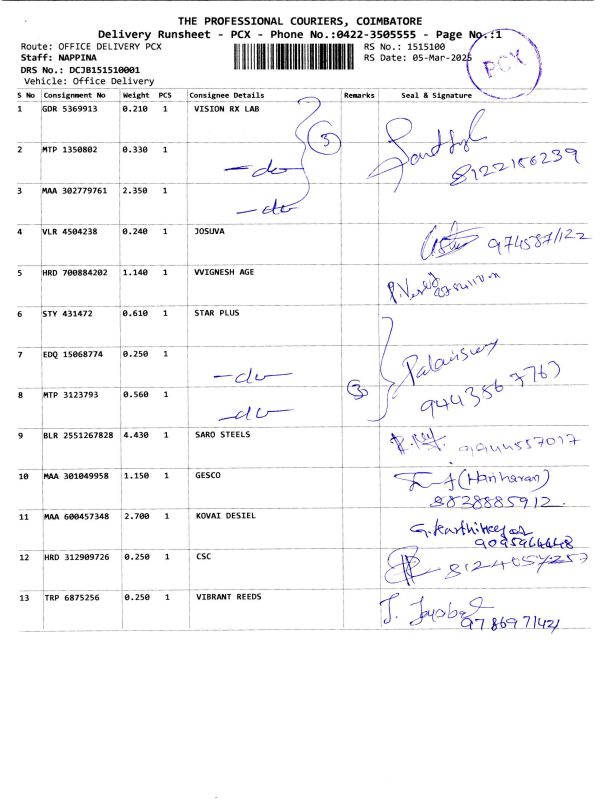 THE PROFESSIONAL COURIERS, COIMBATORE
Delivery Runsheet - PCX - Phone No.:0422-3505555 - Page No.:1
Route: OFFICE DELIVERY PCX RS No.: 1515100
Staff: NAPPINA RS Date: 05-Mar-2025
PCX
DRS No.: DCJB151510001
Vehicle: Office Delivery
S No Consignment No Weight PCS Consignee Details Remarks Seal & Signature
1 GDR 5369913 0.210 1 VISION RX LAB
2 MTP 1350802 0.330 1 -do- 3 8122156239
3 MAA 302779761 2.350 1 -do-
4 VLR 4504238 0.240 1 JOSUVA 9745871122
5 HRD 700884202 1.140 1 VVIGNESH AGE
6 STY 431472 0.610 1 STAR PLUS
7 EDQ 15068774 0.250 1 -do- Palaniswamy
8 MTP 3123793 0.560 1 -do- 3 9443567767
9 BLR 2551267828 4.430 1 SARO STEELS 9944557017
10 MAA 301049958 1.150 1 GESCO (Hariharan)
8828885912.
11 MAA 600457348 2.700 1 KOVAI DESIEL G. Karthikeyan
9095964448
12 HRD 312909726 0.250 1 CSC 8124057257
13 TRP 6875256 0.250 1 VIBRANT REEDS J. Jayabal
9786971421